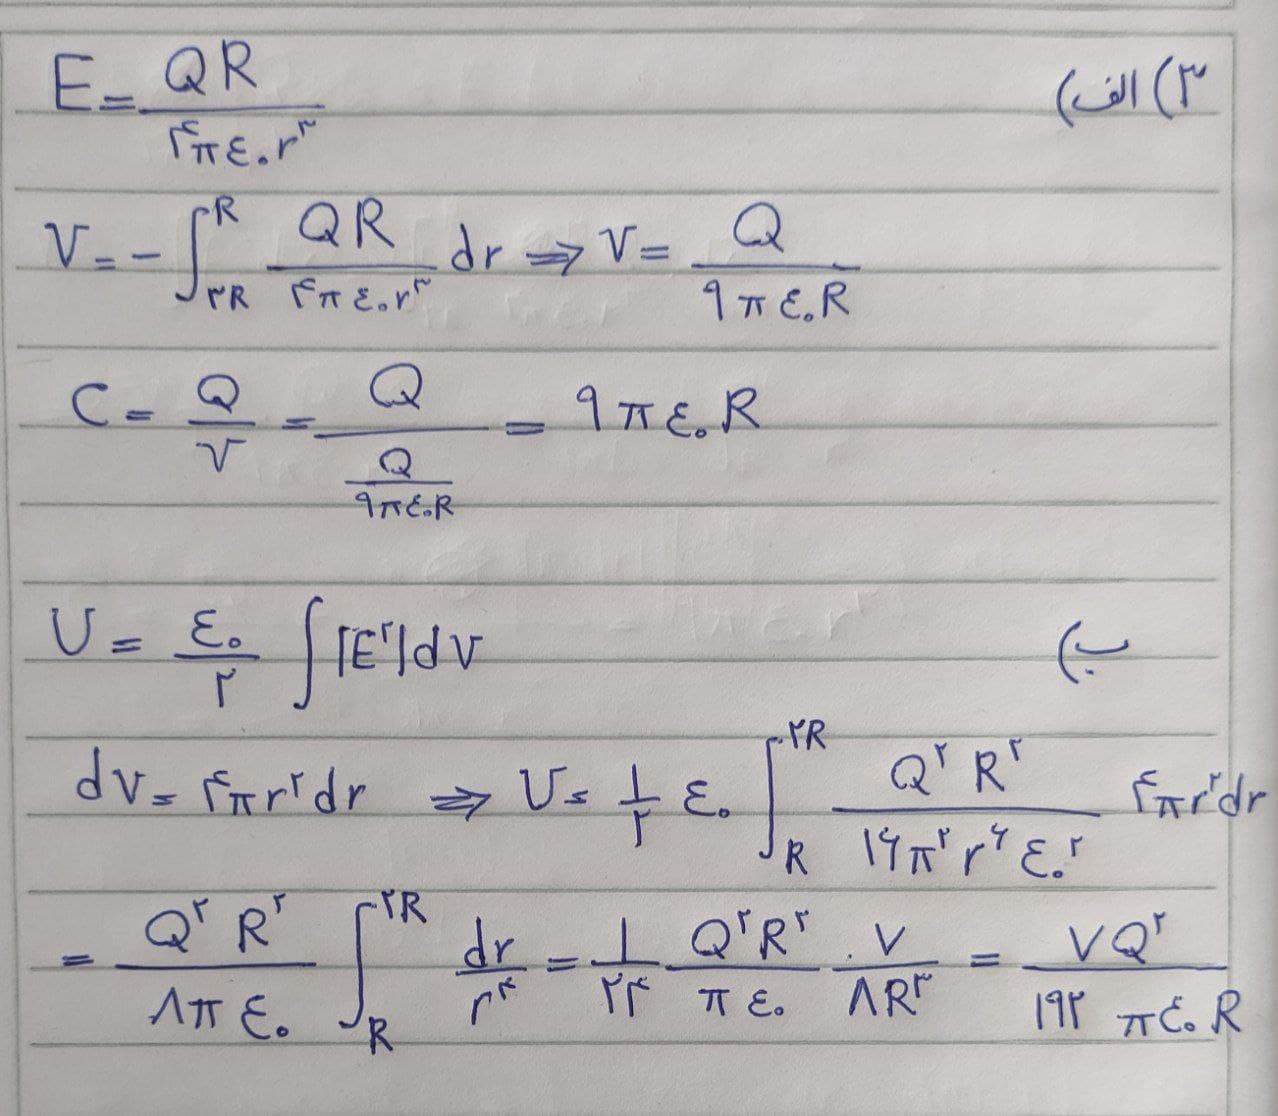 ۳) الف)
E = QR / ۴πε₀r³
V = - ∫_{۲R}^{R} QR / ۴πε₀r³ dr ⇒ V = Q / ۹πε₀R
C = Q / V = Q / (Q / ۹πε₀R) = ۹πε₀R
ب)
U = ε₀ / ۲ ∫ |E²| dV
dV = ۴πr²dr ⇒ U = ۱/۲ ε₀ ∫_{R}^{۲R} Q²R² / ۱۶π²r⁶ε₀² ۴πr²dr
= Q²R² / ۸πε₀ ∫_{R}^{۲R} dr / r⁴ = ۱/۲۴ Q²R² / πε₀ . ۷ / ۸R³ = ۷Q² / ۱۹۲πε₀R